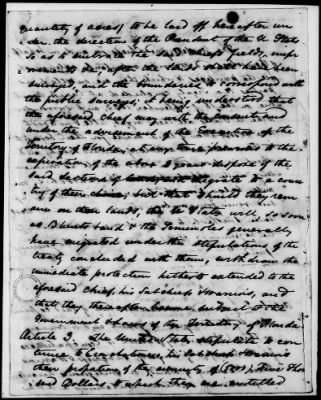 quantity of acres) to be laid off hereafter un
der the direction of the President of the U States
so as to embrace the said chiefs fields, impr
ovements &c, after the lands shall have been
surveyed, and the boundaries to correspond with
the public surveys; it being understood that
the aforesaid chief may with the consent and
under the advisement of the Executive of the
Territory of Florida, at any time previous to the
expiration of the above years dispose of the
said sections of land and migrate to a coun
try of their choice; but that should they rem
ain on their lands, the U States will, so soon
as Blunt's band & the Seminoles generally
have migrated under the stipulations of the
treaty concluded with them, withdraw the
immediate protection hitherto extended to the
aforesaid chief, his Subchiefs & Warriors, and
that they thereafter become subject to the
Government & laws of the Territory of Florida
Article 3. The United States stipulate to con
tinue to his Subchiefs Warriors
their proportion of the annuity of Five Thou
sand Dollars, to which they are entitled